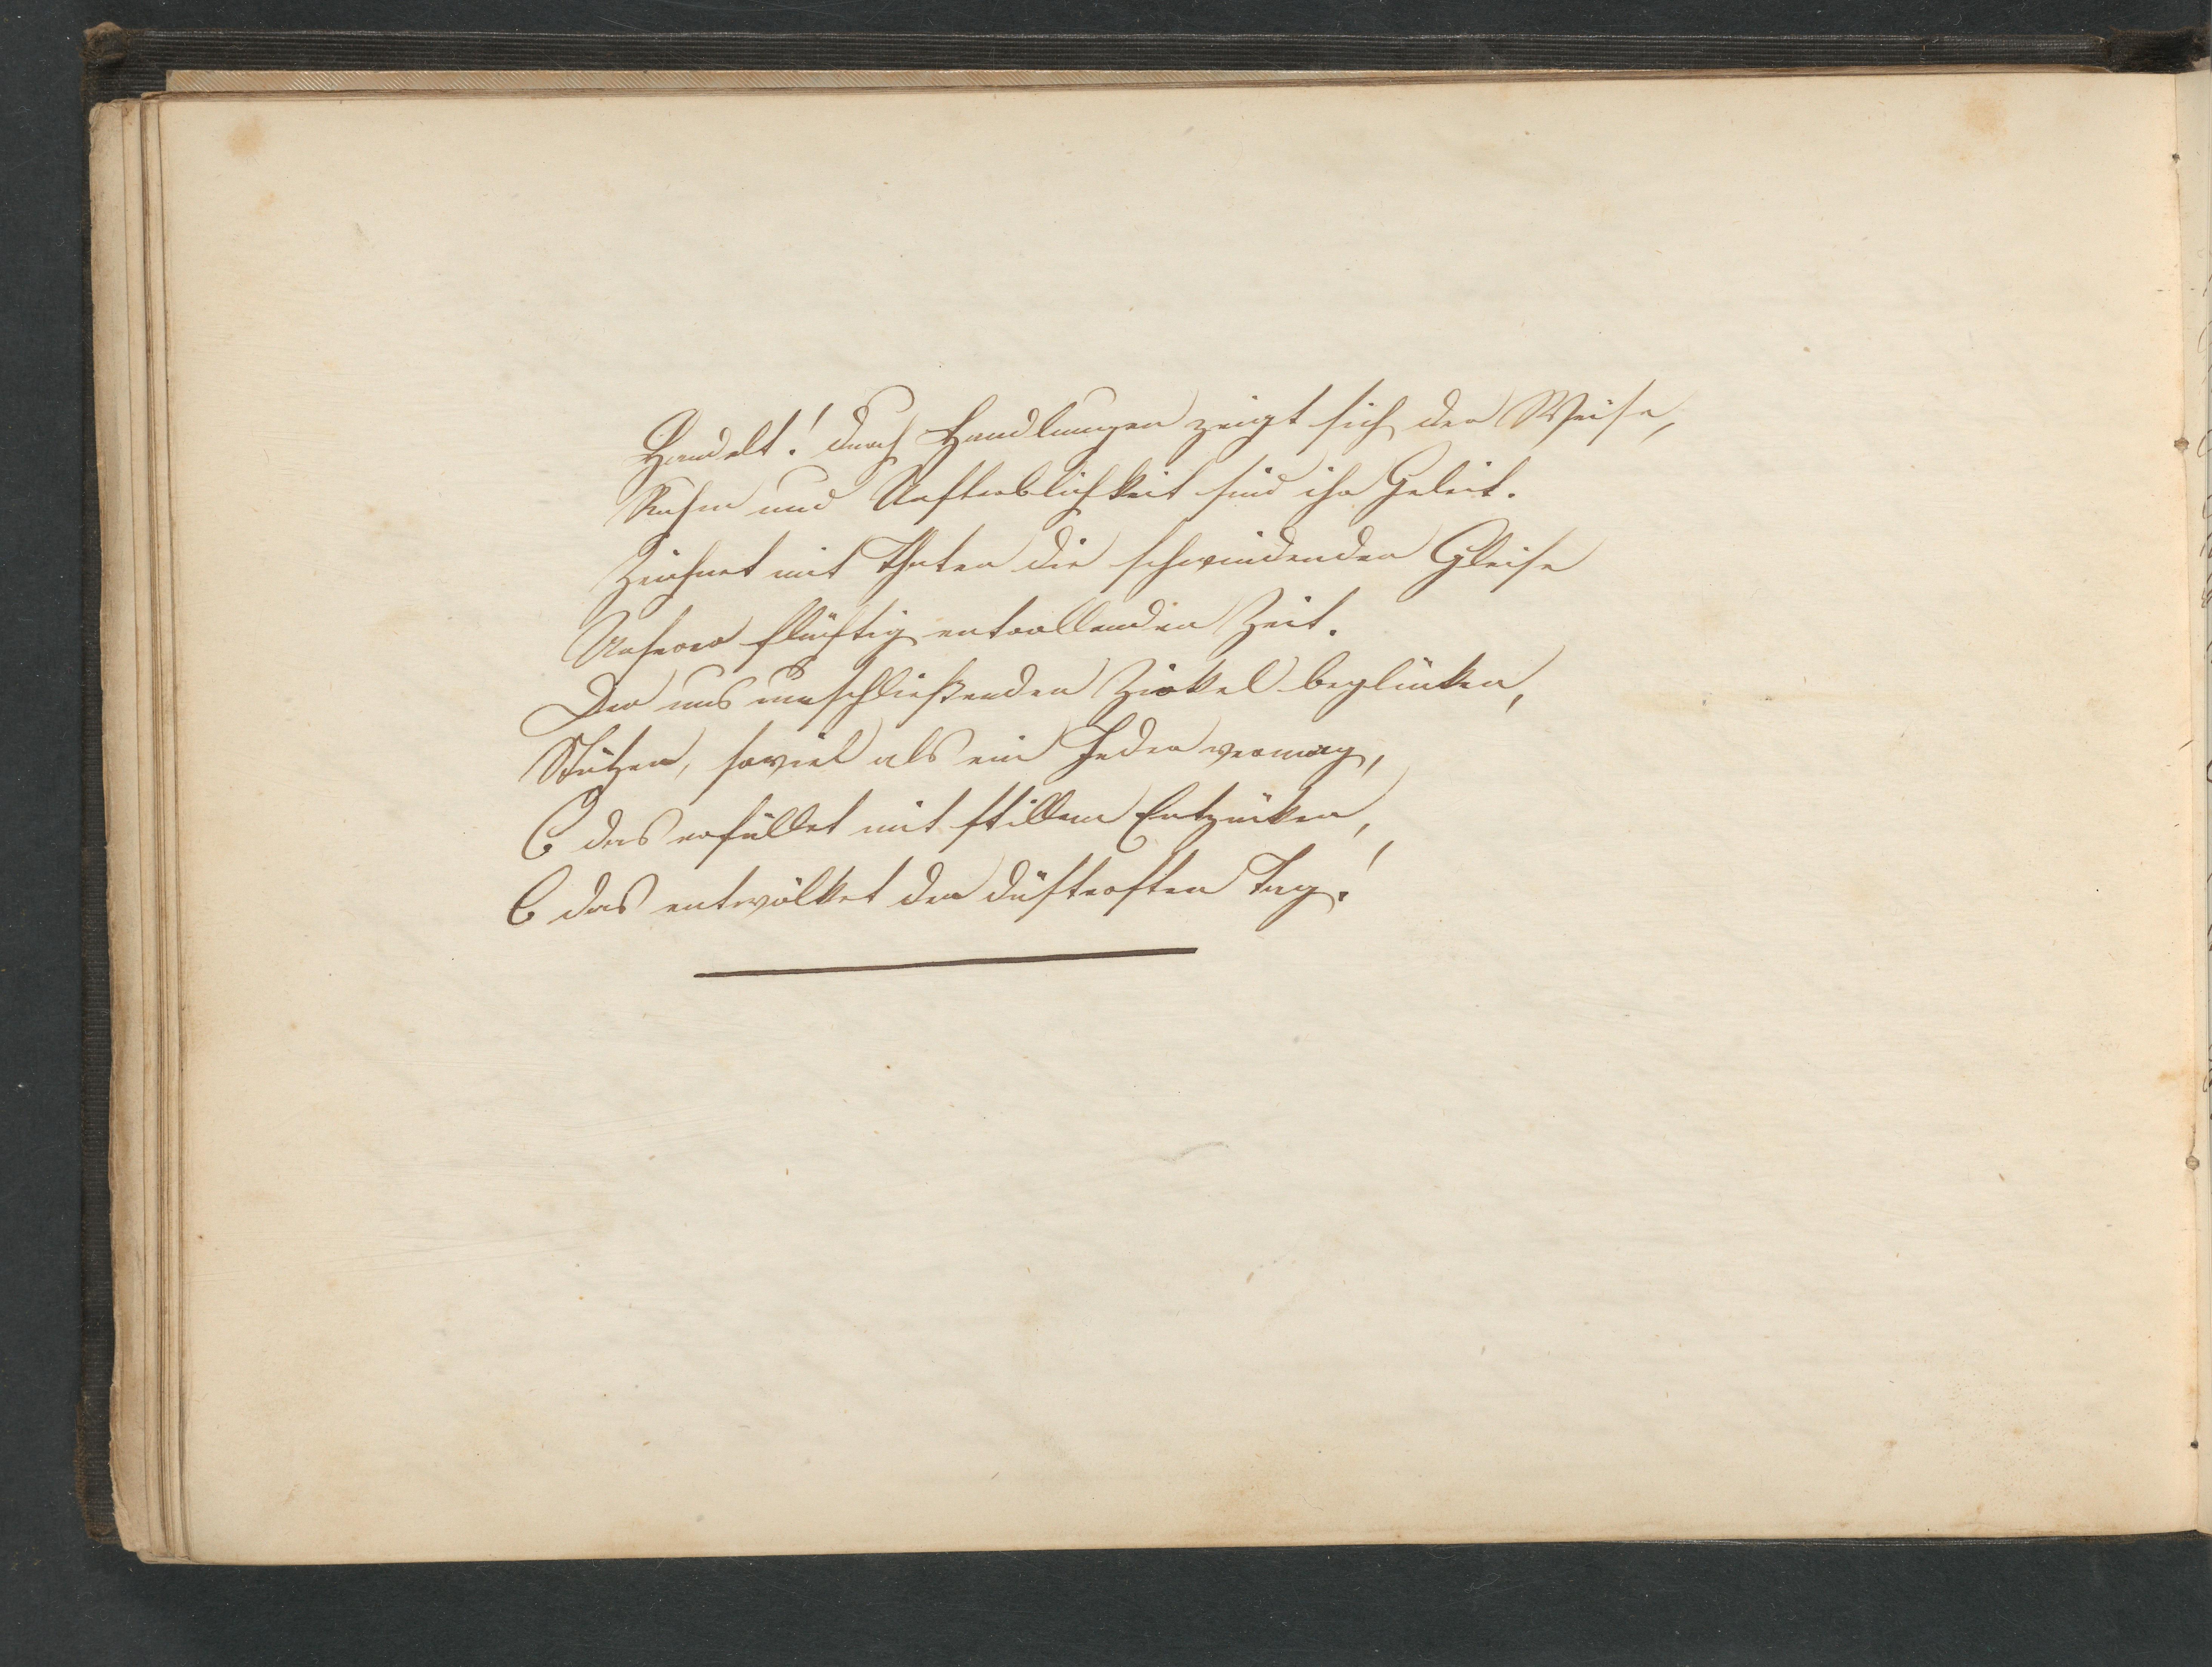 Handelt! durch Handlungen zeigt sich der Weise,
Ruhm und Unsterblichkeit sind ihr Geleit.
Zeichnet mit Thaten die schwindenden Gleise
Unserer flüchtig entrollenden Zeit.
Den uns umschließenden Zirkel beglücken,
Nützen, soviel als ein Jeder vermag,
O das erfüllet mit stillem Entzücken,
O das entwölket den düstersten Tag!